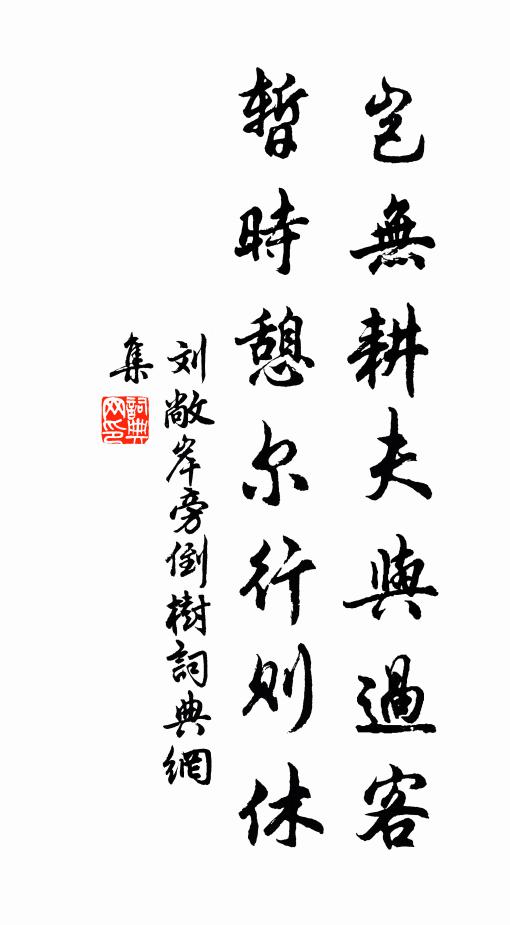 岂無耕夫與過客
暫時憩尔行則休
刘敞岸旁倒樹詞典網
集
詞典
网印